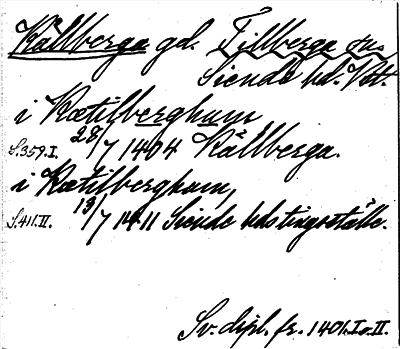 Källberga gd. Tillberga sn.
Siende hd. Vstm.
i Kætilberghum
S.359.I. 28/7 1404 Källberga.
i Kætilberghum,
S.411.II. 13/7 1411 Siende hdstingsställe.
Sv. dipl. fr. 1401.I o. II.